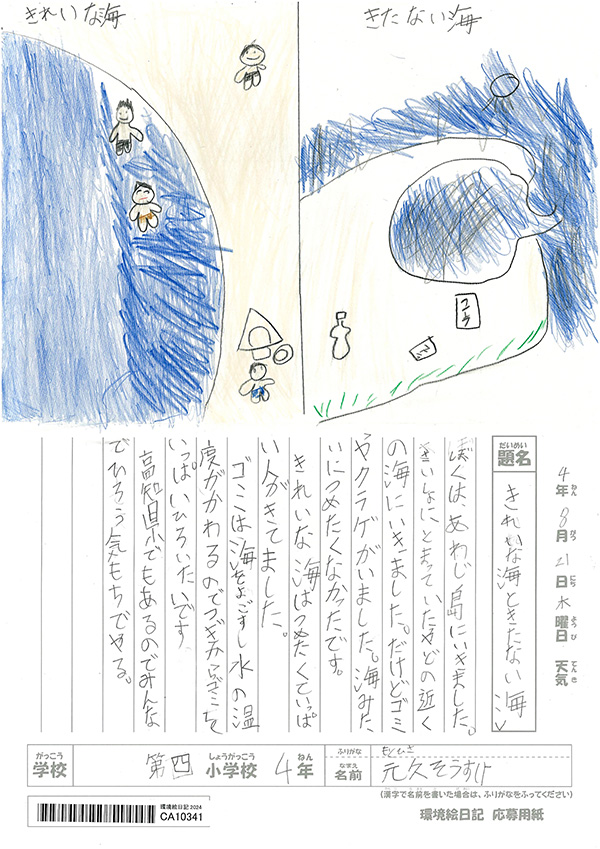 きれいな海
きたない海
ゴミ
4年 8月 21日 水曜日 天気
だいめい
題名
きれいな海ときたない海
ぼくは、あわじ島にいきました。
さいしょに、とまっていたやどの近く
の海にいきました。だけどゴミ
やクラゲがいました。海みた
いにつめたくなかったです。
きれいな海はつめたくていっぱ
い人がきてました。
ゴミは海をよごすし水の温
度がかわるのでつぎからゴミを
いっぱいひろいたいです。
高知県でもあるのでみんな
でひろう気もちでやる。
がっこう
学校
第四 小学校 4年
しょうがっこう
ねん
ふりがな
もとひさ
なまえ
名前
元久そうすけ
(漢字で名前を書いた場合は、ふりがなをふってください)
環境絵日記2024
CA10341
環境絵日記 応募用紙